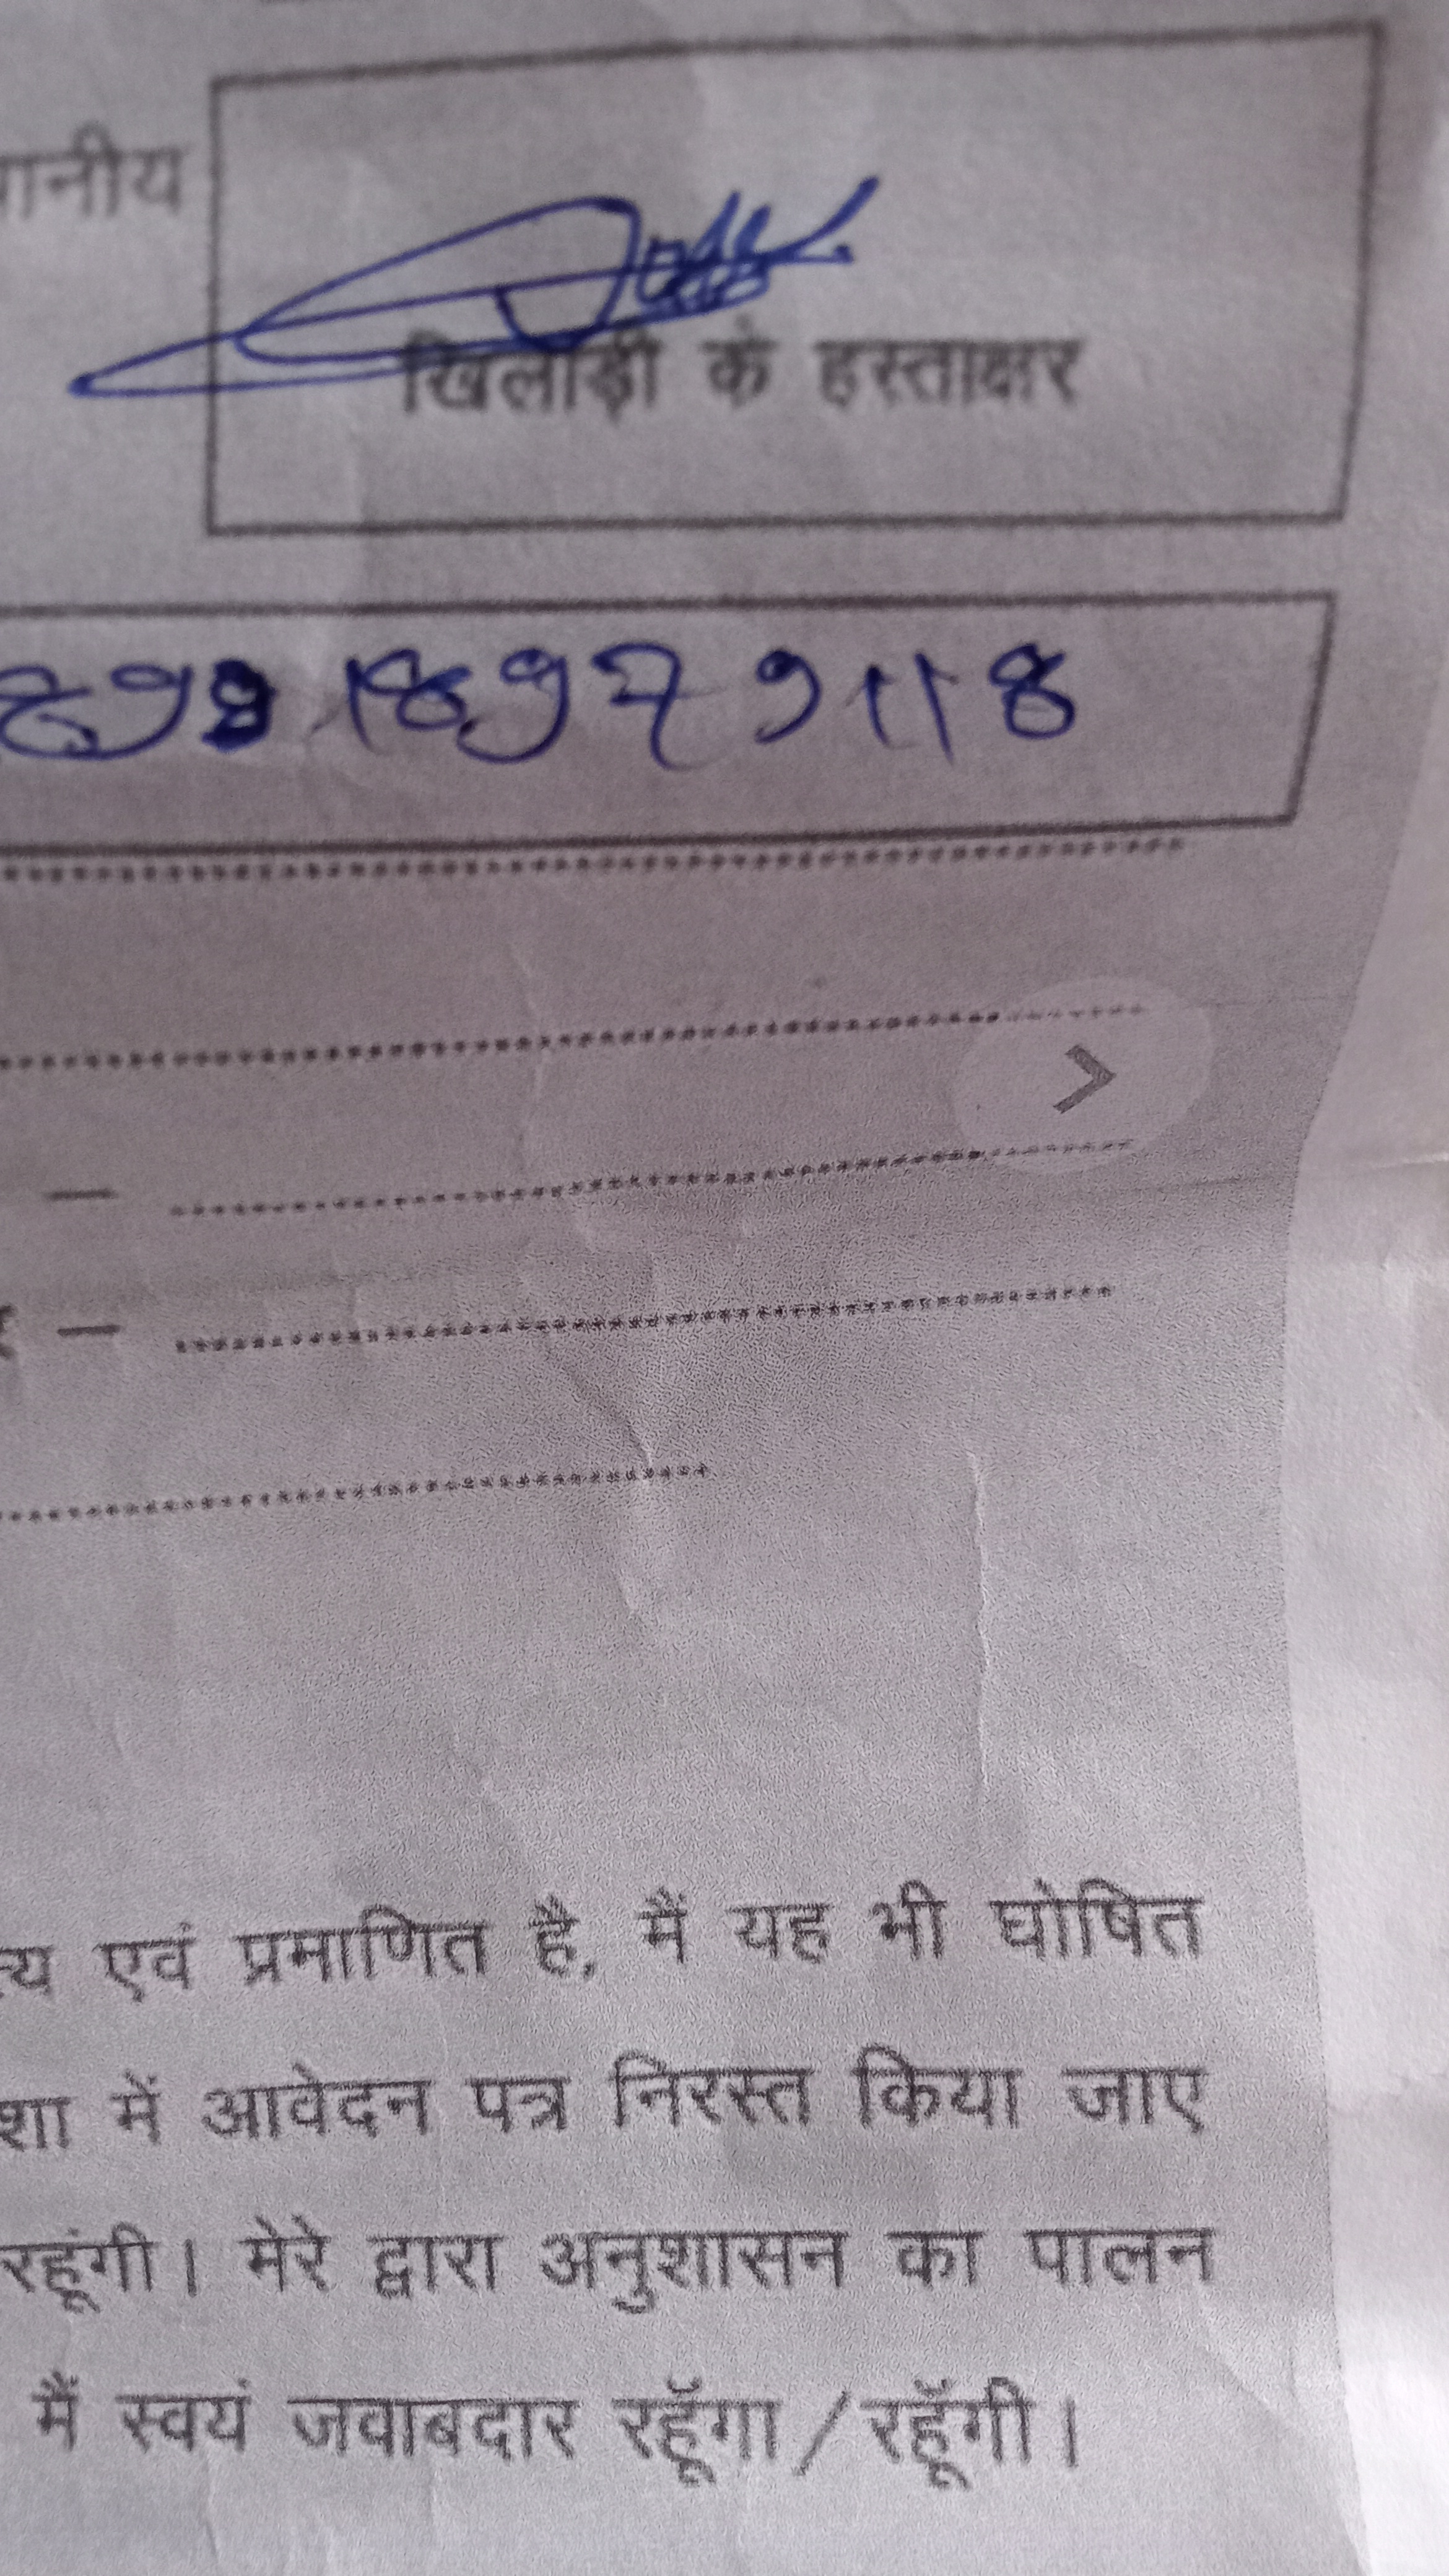 खिलाड़ी के हस्ताक्षर
—
—
एवं प्रमाणित है, मैं यह भी घोषित
में आवेदन पत्र निरस्त किया जाए
रहूंगी। मेरे द्वारा अनुशासन का पालन
मैं स्वयं जवाबदार रहूॅगा/रहूॅगी।